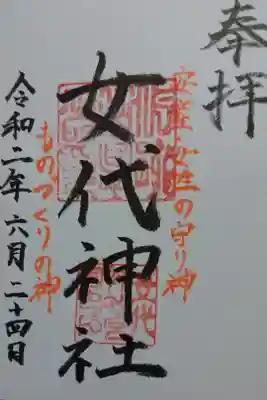 奉拝
安産安性の守り神
女代神社
ものづくりの神
令和二年六月二十四日